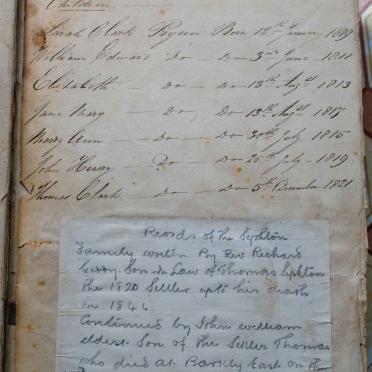 Children
Sarah Clark Born 12th January
William Edward Do — Do — 3rd June — 1811
Elizabeth — Do — Do — 18th Augst 1813
Jane Mary — Do — Do — 13th Augst 1817
Mary Ann — Do — Do — 30th July — 1815
John Henry — Do — Do — 26th July — 1819
Thomas Clark — Do — Do — 5th December 1821
Records of the Sephton
Family By Rev Richard
Son in Law of Thomas Sephton
the 1820 Settler upto his death
in
Continued by John William
eldest Son of the Settler Thomas
who died at Barkly East on the